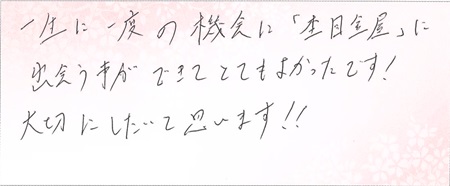 一生に一度の機会に「杢目金屋」に
出会う事ができてとてもよかったです!
大切にしたいて思います!!